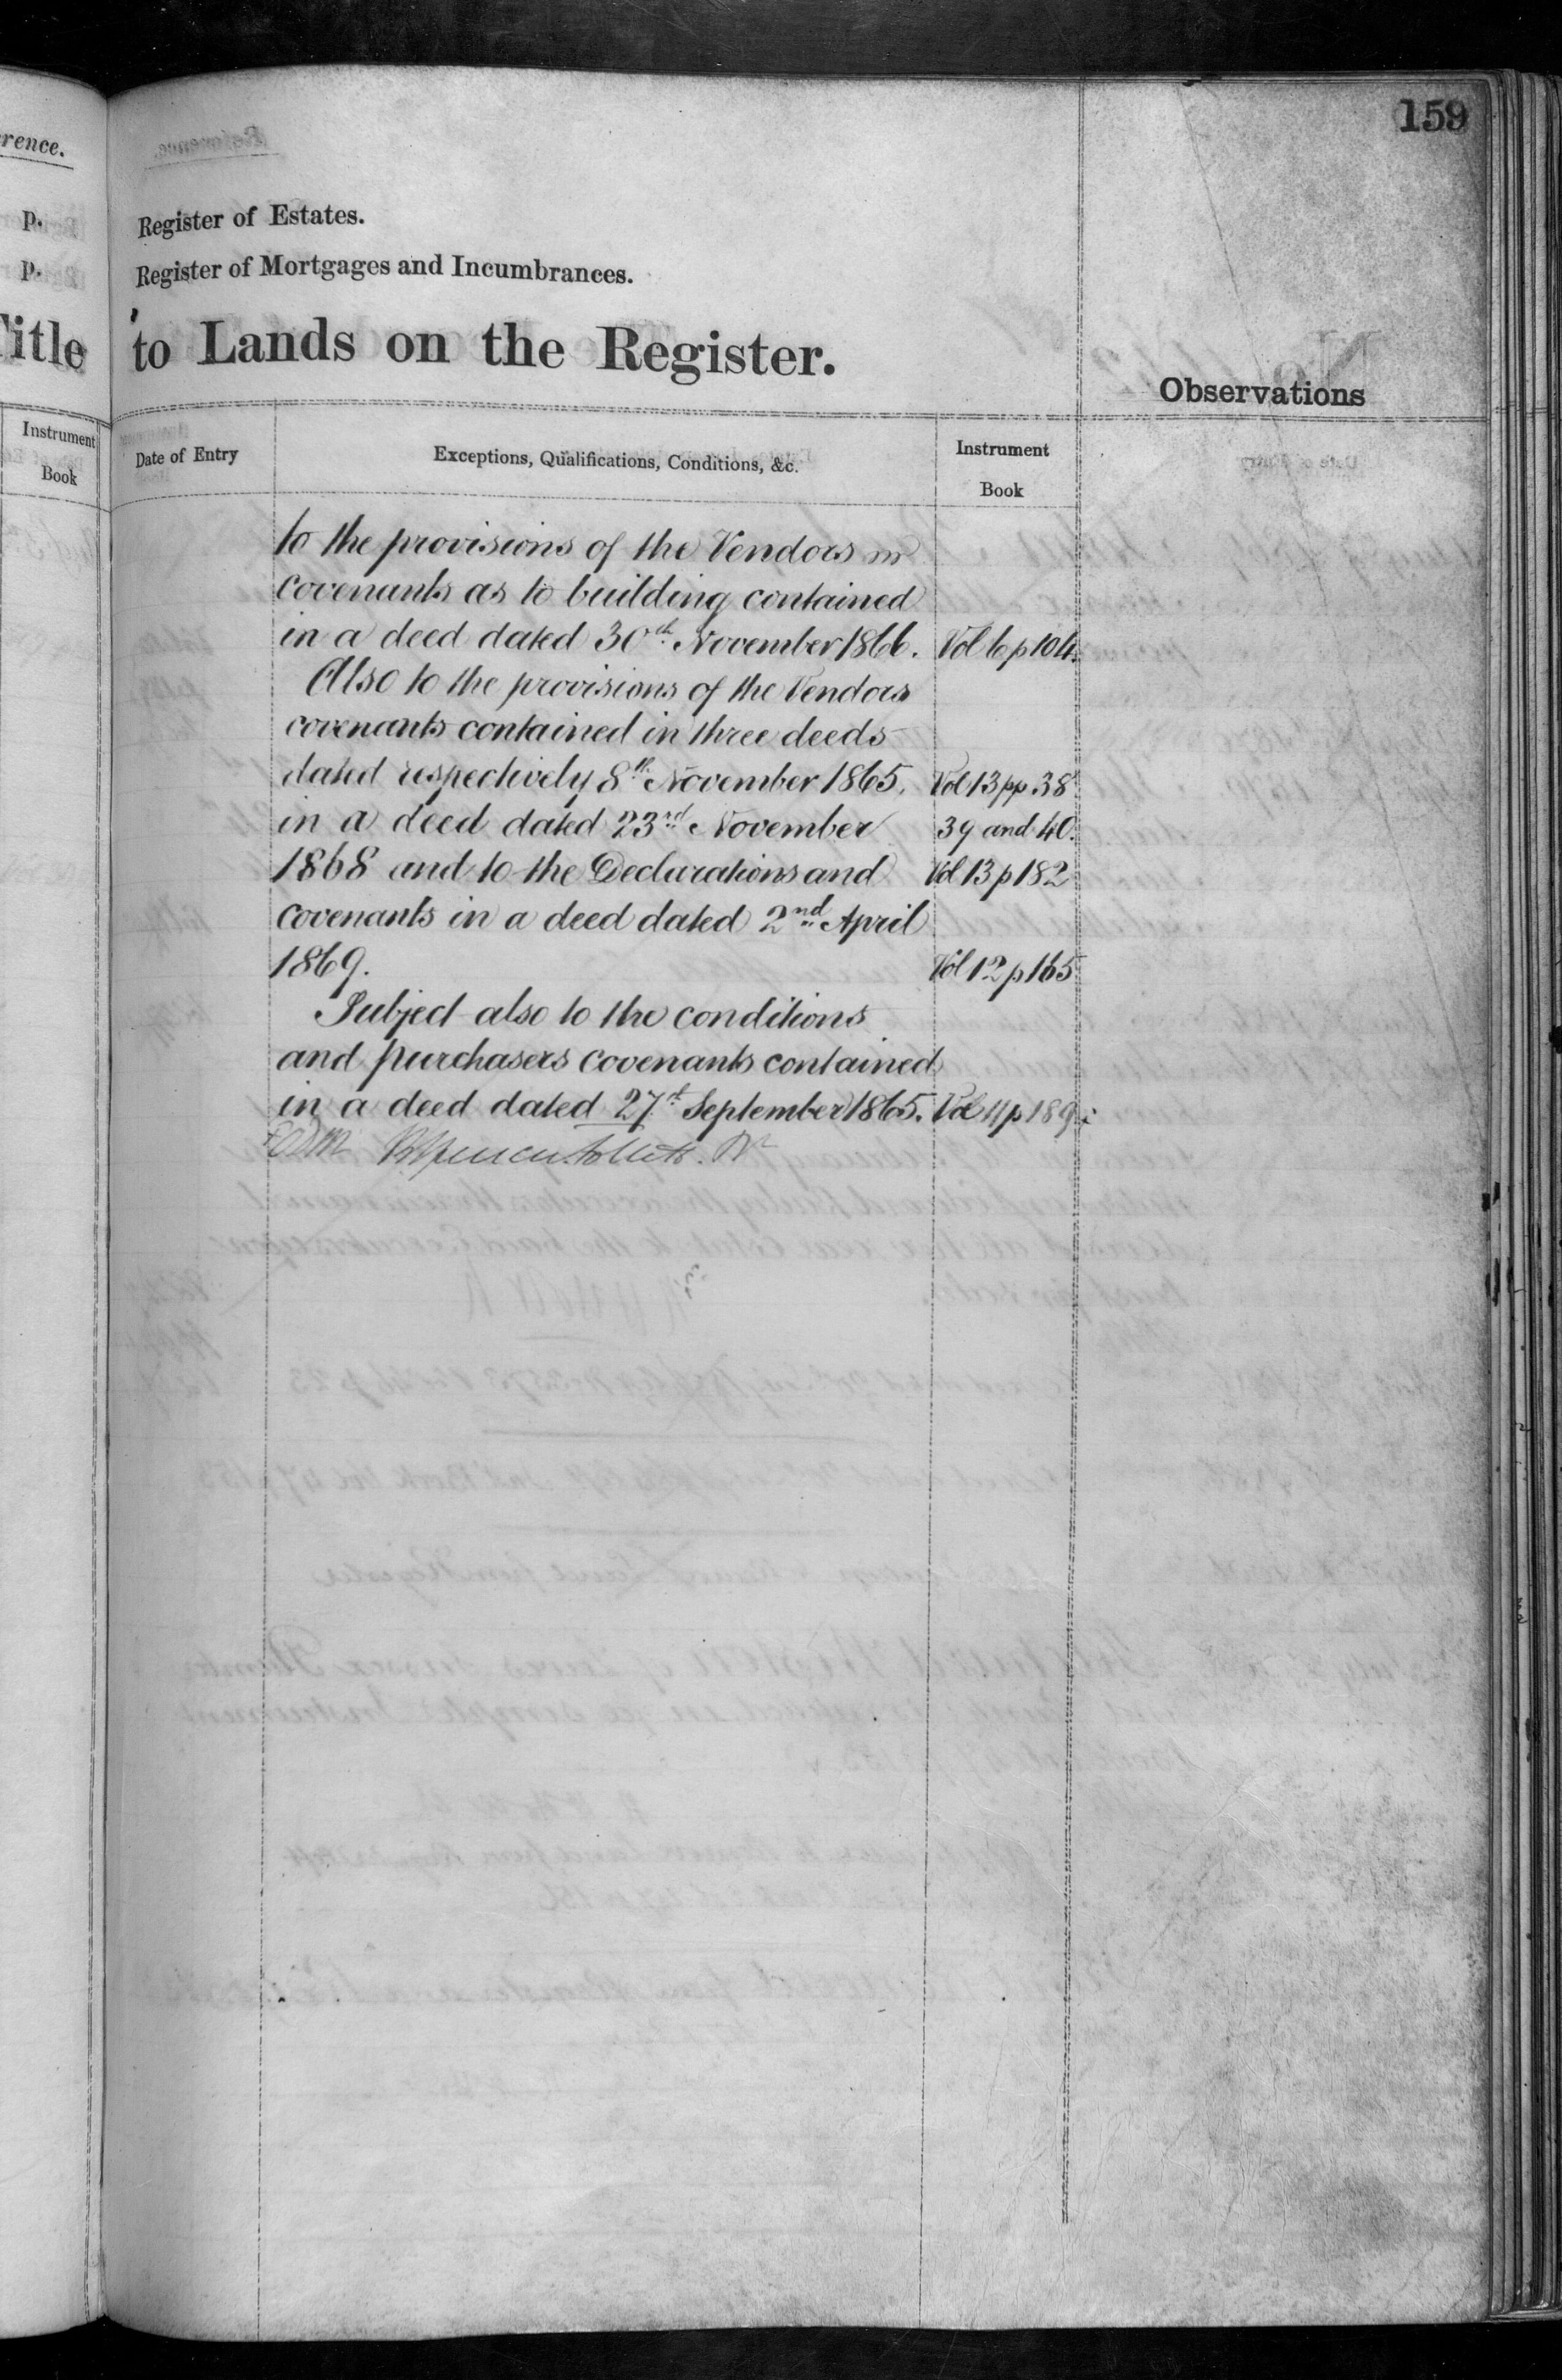 rence.
p.
p.
Title
Instrument
Book
159
Register of Estates.
Register of Mortgages and Incumbrances.
to Lands on the Register.
Observations
Date of Entry
Exceptions, Qualifications, Conditions, &c.
Instrument
Book
to the provisions of the Vendors
covenants as to building contained
in a deed dated 30th November 1866. Vol 6 p 104.
Also to the provisions of the Vendors
covenants contained in three deeds
dated respectively 8th November 1865. Vol 13 pp 38
in a deed dated 23rd November 39 and 40.
1868 and to the Declarations and Vol 13 p 182
covenants in a deed dated 2nd April
1869. Vol 12 p 165
Subject also to the conditions
and purchasers covenants contained
in a deed dated 27th September 1865. Vol 11 p 189